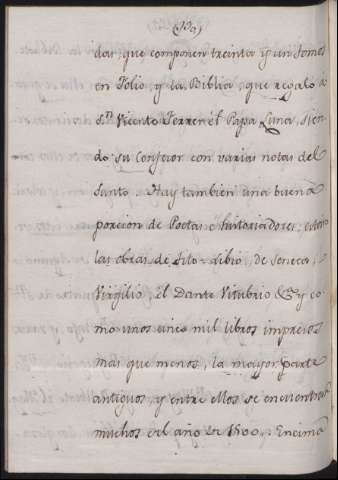 das, que componen treinta y un tomos
en Folio, y la Biblia, que regaló a
S.n Vicente Ferrer él Papa Luna, sien-
do su Confesor con varias notas del
Santo. Hay tambien una buena
porcion de Poetas e historiadores, como
las obras de Tito-Libio, de Seneca,
Virgilio, él Dante Vitubrio &a y co-
mo unos cinco mil libros impresos
mas que menos, la mayor parte
antiguos, y entre ellos se encuentran
muchos del año de 1500. Encima